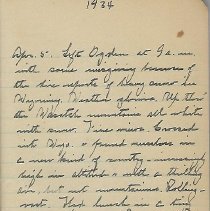 1934
Apr. 5. Left Ogden at 9 a.m.
with some misgiving because of
the bus reports of heavy snow in
Wyoming. Weather glorious. Up thro'
the Wasatch mountains all white
with snow. Fine views. Crossed
into Wyo. & found ourselves in
a new kind of country - increasingly
high in altitude & with a thin
air, but not mountainous. Rolling